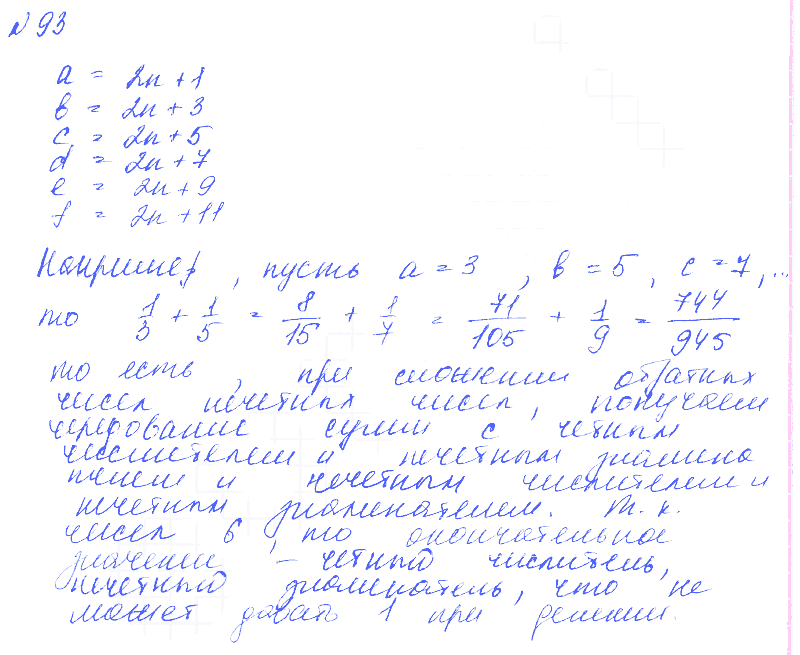 № 93
a = 2n + 1
b = 2n + 3
c = 2n + 5
d = 2n + 7
e = 2n + 9
f = 2n + 11
Например, пусть a = 3, b = 5, c = 7, ...
то 1/3 + 1/5 = 8/15 + 1/7 = 71/105 + 1/9 = 744/945
то есть, при сложении обратных
чисел нечетных чисел, получаем
чередование сумм с четным
числителем и нечетным знамена
телем и нечетным числителем и
нечетным знаменателем. Т. к.
чисел 6, то окончательное
значение – четный числитель,
нечетный знаменатель, что не
может давать 1 при делении.